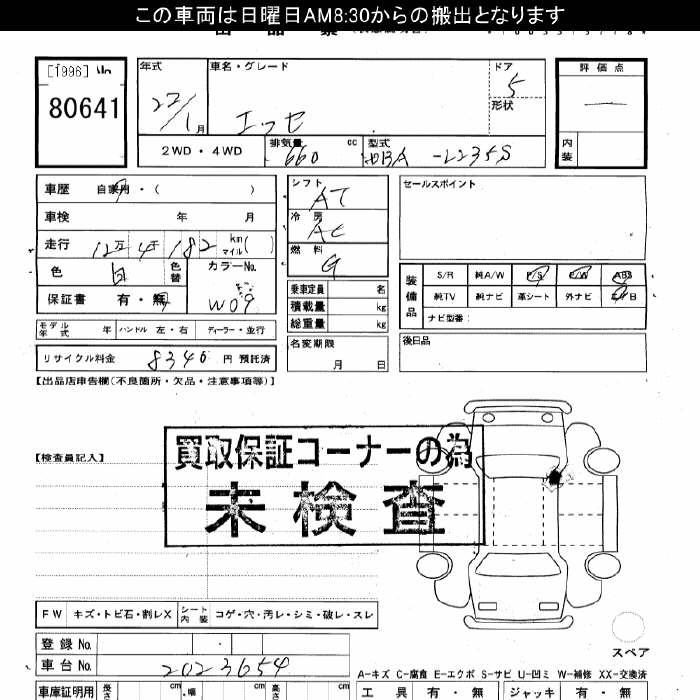 この車両は日曜日AM8:30からの搬出となります
[1996]
80641
年式
車名・グレード
ドア
評価点
22/1月
エッセ
5
形状
2WD・4WD
排気量 660 cc
型式 -L235S
内装
車歴 自家用・( )
シフト AT
セールスポイント
車検 年 月
冷房 AC
走行 12万4千182 km マイル( )
燃料 G
色 白 色替
カラーNo. W09
保証書 有・無
乗車定員 名
積載量 kg
総重量 kg
装備品
S/R 純A/W P/S P/W ABS
純TV 純ナビ 革シート 外ナビ
ナビ型番:
モデル年式 年 ハンドル 左・右 ディーラー・並行
名変期限 月 日
後日品
リサイクル料金 8340 円 預託済
【出品店申告欄(不良箇所・欠品・注意事項等)】
【検査員記入】
買取保証コーナーの為
未検査
FW キズ・トビ石・割レX シート内装 コゲ・穴・汚レ・シミ・破レ・スレ
登録No.
車台No. 2023654
スペア
A-キズ C-腐食 E-エクボ S-サビ U-凹ミ W-補修 XX-交換済
車庫証明用 長さ cm 幅 cm 高さ cm
工具 有・無 ジャッキ 有・無